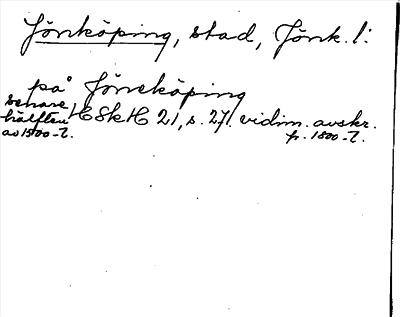 Jönköping, stad, Jönk. l:
på Jöneköping
senare hälften av 1500-t. HSkH 21, s. 27. vidim. avskr. fr. 1800-t.